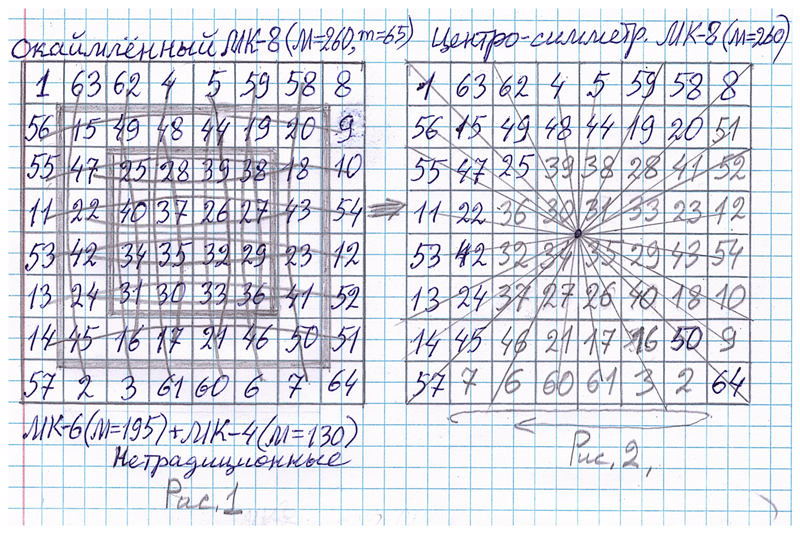 Окаймлённый МК-8 (М=260, m=65)
1 63 62 4 5 59 58 8
56 15 49 48 44 19 20 9
55 47 25 28 39 38 18 10
11 22 40 37 26 27 43 54
53 42 34 35 32 29 23 12
13 24 31 30 33 36 41 52
14 45 16 17 21 46 50 51
57 2 3 61 60 6 7 64
МК-6 (М=195) + МК-4 (М=130)
Нетрадиционные
Рис. 1
Центро-симметр. МК-8 (М=260)
1 63 62 4 5 59 58 8
56 15 49 48 44 19 20 51
55 47 25 39 38 28 41 52
11 22 36 30 31 33 23 12
53 42 32 34 35 29 43 54
13 24 37 27 26 40 18 10
14 45 46 21 17 16 50 9
57 7 6 60 61 3 2 64
Рис. 2,